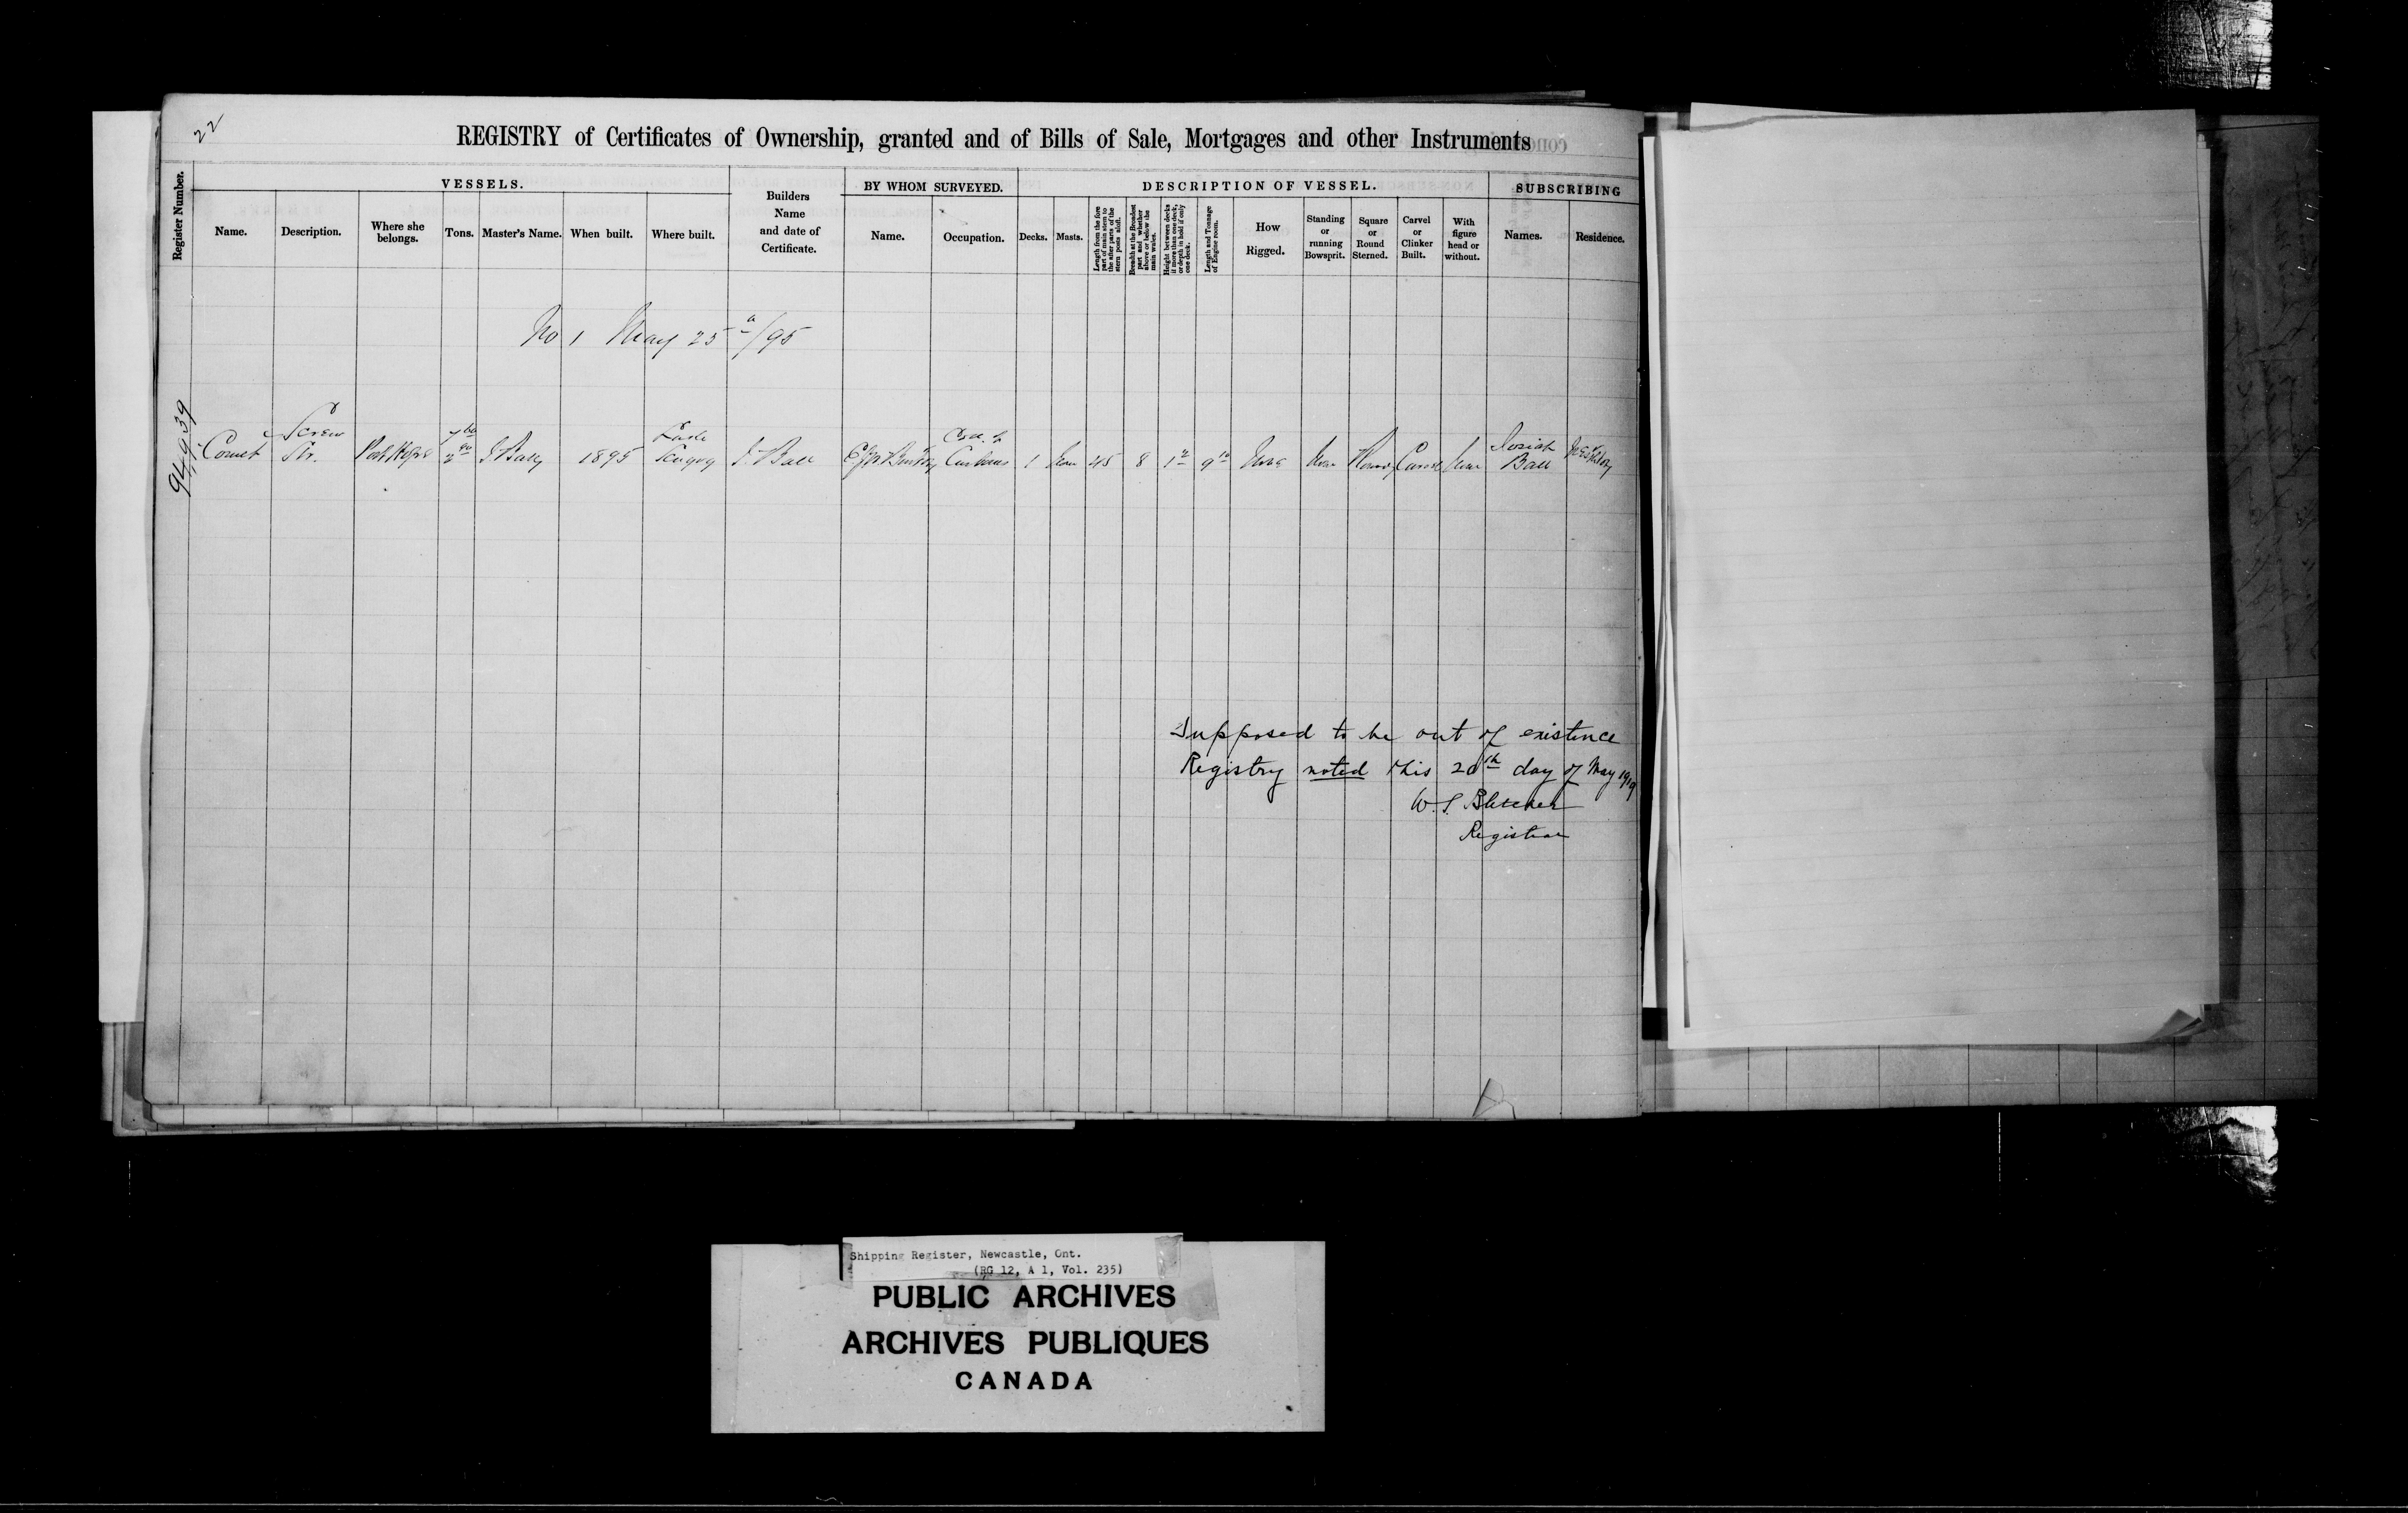 22
REGISTRY of Certificates of Ownership, granted and of Bills of Sale, Mortgages and other Instruments
Register Number.
VESSELS.
Name.
Description.
Where she belongs.
Tons.
Master's Name.
When built.
Where built.
Builders Name and date of Certificate.
BY WHOM SURVEYED.
Name.
Occupation.
DESCRIPTION OF VESSEL.
Decks.
Masts.
Length from the fore part of main stem to the after parts of the stern posts aloft.
Breadth at the Broadest part and whether above or below the main wales.
Height between decks if more than one deck, or depth in hold if only one deck.
Length and Tonnage of Engine room.
How Rigged.
Standing or running Bowsprit.
Square or Round Sterned.
Carvel or Clinker Built.
With figure head or without.
SUBSCRIBING
Names.
Residence.
No 1 May 25 /95
94,939
Comet
Screw Str.
Port Hope
1895
Lake Scugog
J. Ball
Customs
1
None
45
8
None
None
Round
Carvel
None
Josiah Ball
Supposed to be out of existence
Registry noted this 20th day of May 1919
W. S. Bletcher
Registrar
Shipping Register, Newcastle, Ont.
(RG 12, A 1, Vol. 235)
PUBLIC ARCHIVES
ARCHIVES PUBLIQUES
CANADA